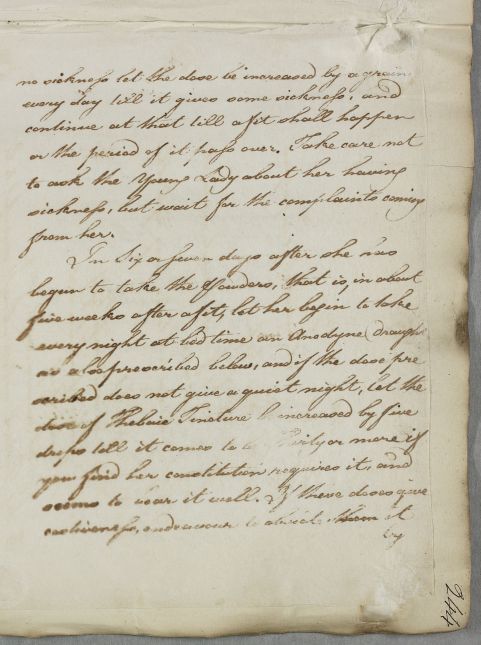 no sickness let the dose be increased by a grain
every day till it gives some sickness, and
continue at that till a fit shall happen
or the period of it pass over. Take care not
to ask the Young Lady about her having
sickness, but wait for the complaints coming
from her.
In Six or seven days after she has
begun to take the Powders, that is, in about
five weeks after a fit, let her begin to take
every night at Bed time an Anodyne draught
as also prescribed below, and if the dose pre
scribed does not give a quiet night, let the
dose of Thebaic Tincture be increased by five
drops till it comes to be thirty or more if
you find her constitution requires it, and
seems to bear it well. If these doses give
costiveness, endeavour to obviate them it
by
244